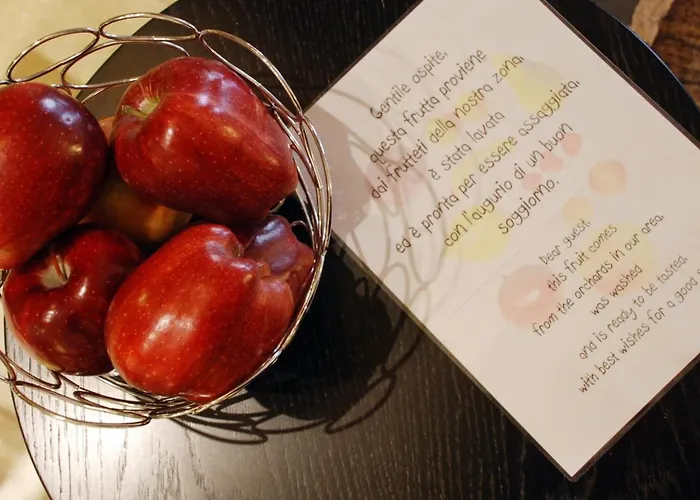 Gentile ospite,
questa frutta proviene
dai frutteti della nostra zona,
è stata lavata
ed è pronta per essere assaggiata,
con l'augurio di un buon
soggiorno.
Dear guest,
this fruit comes
from the orchards in our area,
was washed
and is ready to be tasted,
with best wishes for a good